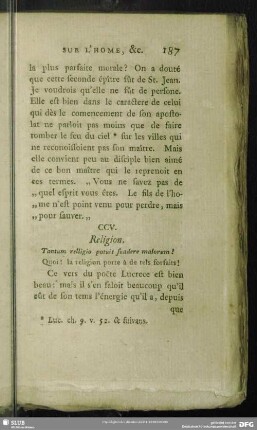 SUR L'HOME, &c. 187
la plus parfaite morale? On a douté
que cette seconde épître fût de St. Jean.
je voudrois qu'elle ne fût de persone.
Elle est bien dans le caractere de celui
qui dès le comencement de son aposto-
lat ne parloit pas moins que de faire
tomber le feu du ciel * sur les villes qui
ne reconoissoient pas son maître. Mais
elle convient peu au disciple bien aimé
de ce bon maître qui le reprenoit en
ces termes. „ Vous ne savez pas de
„ quel esprit vous êtes. Le fils de l'ho-
„ me n'est point venu pour perdre, mais
„ pour sauver. „
CCV.
Religion.
Tantum relligio potuit suadere malorum?
Quoi! la religion porte à de tels forfaits!
Ce vers du poëte Lucrece est bien
beau: mais il s'en faloit beaucoup qu'il
eût de son tems l'énergie qu'il a, depuis
que
* Luc. ch. 9. v. 52. & suivans.
SLUB
DFG